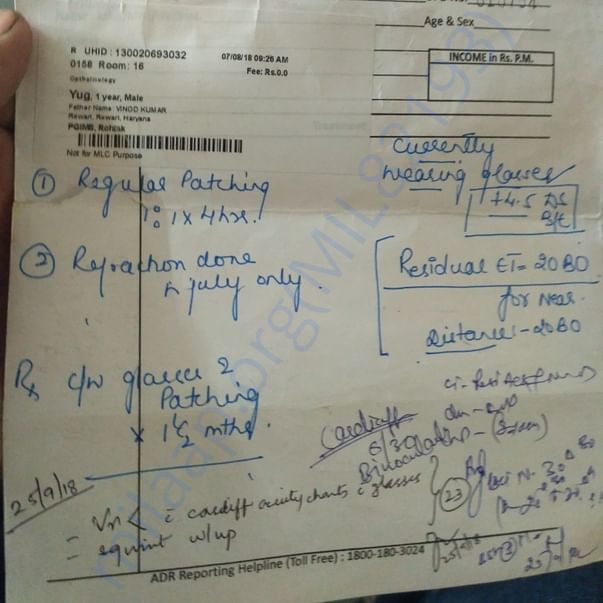 Age & Sex
R UHID : 130020693032
07/08/18 09:26 AM
0158 Room: 16
Fee: Rs.0.0
INCOME in Rs. P.M.
Opthalmology
Yug, 1 year, Male
Father Name: VINOD KUMAR
Rewari, Rewari, Haryana
PGIMS, Rohtak
Not for MLC Purpose
Currently
wearing glasses
+4.5 DS
B/E
① Regular Patching
1:1 x 4hrs.
② Refraction done
in July only.
Residual ET= 20 BO
for Near
Distance - 20 BO
Rx c/w glasses &
Patching
x 1½ mths.
Cardiff
6/30
Binocular
25/9/18
Vn < c cardiff acuity charts c glasses
= squint w/up
23
25/9/18
milaap.org(MIL82193)
ADR Reporting Helpline (Toll Free) : 1800-180-3024